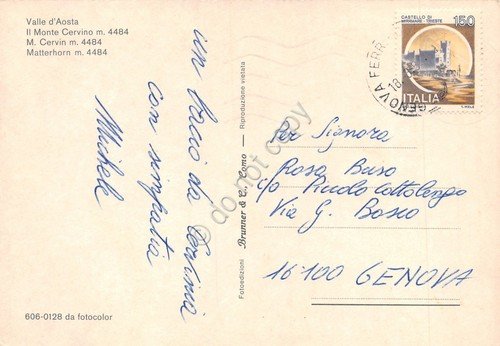 Valle d'Aosta
Il Monte Cervino m. 4484
M. Cervin m. 4484
Matterhorn m. 4484
un bacio da Cervinia
con simpatia
Michele
606-0128 da fotocolor
Fotoedizioni Brunner & C., Como — Riproduzione vietata
do not copy
CASTELLO DI
MIRAMARE - TRIESTE
150
ITALIA
GENOVA FERR
Per Signora
Rosa Buso
c/o Piccolo Cottolengo
Via G. Bosco
16100 GENOVA